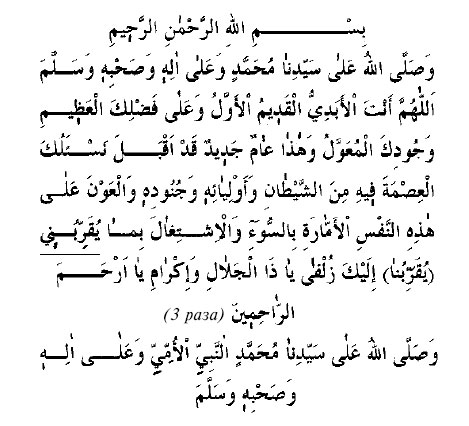 بِسْــــــــــــمِ اللهِ الرَّحْمٰنِ الرَّحِيمِ
وَصَلَّى اللهُ عَلٰى سَيِّدِنٰا مُحَمَّدٍ وَعَلٰى اٰلِهِ وَصَحْبِهِ وَسَـــلَّمَ
اَللّٰهُمَّ اَنْتَ الْأَبَدِيُّ الْقَدِيمُ الْأَوَّلُ وَعَلٰى فَضْلِكَ الْعَظِيمِ
وَجُودِكَ الْمُعَوَّلُ وَهٰذٰا عٰامٌ جَدِيدٌ قَدْ اَقْبَـــلَ نَسْــئَلُكَ
الْعِصْمَةَ فِيهِ مِنَ الشَّيْطٰانِ وَأَوْلِيٰائِهِ وَجُنُودِهِ وَالْعَوْنَ عَلٰـــى
هٰذِهِ النَّفْسِ الْأَمّٰارَةِ بِالسُّوۤءِ وَالْاِشْتِغٰالَ بِمـــٰا يُقَرِّبُـــنِي
(يُقَرِّبُنٰا) اِلَيْكَ زُلْفٰى يٰا ذَا الْجَلٰالِ وَاِكْرٰامِ يٰا اَرْحَــــمَ
الرّٰاحِمِينَ (3 раза)
وَصَلَّى اللهُ عَلٰى سَيِّدِنٰا مُحَمَّدٍ النَّبِيِّ الْأُمِّيِّ وَعَلٰـــى اٰلِـــهِ
وَصَحْبِهِ وَسَلَّمَ